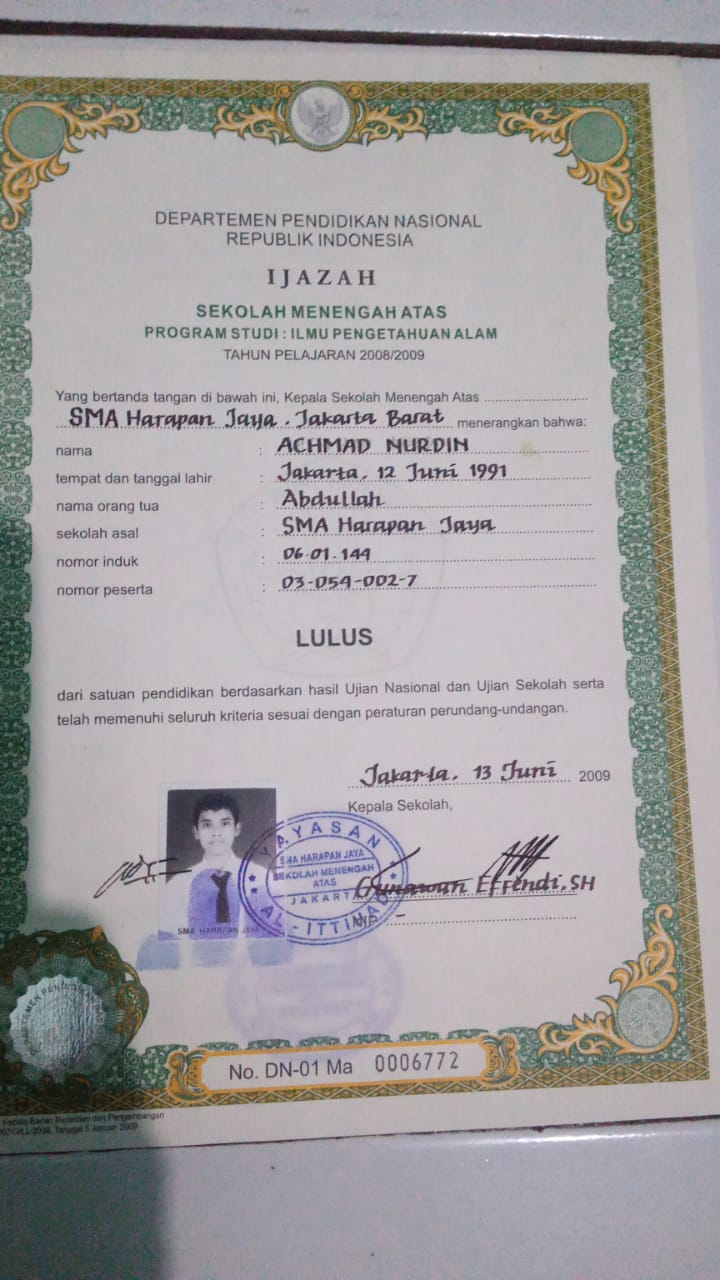 DEPARTEMEN PENDIDIKAN NASIONAL
REPUBLIK INDONESIA
IJAZAH
SEKOLAH MENENGAH ATAS
PROGRAM STUDI : ILMU PENGETAHUAN ALAM
TAHUN PELAJARAN 2008/2009
Yang bertanda tangan di bawah ini, Kepala Sekolah Menengah Atas
SMA Harapan Jaya . Jakarta Barat menerangkan bahwa:
nama : ACHMAD NURDIN
tempat dan tanggal lahir : Jakarta, 12 Juni 1991
nama orang tua : Abdullah
sekolah asal : SMA Harapan Jaya
nomor induk : 06.01.144
nomor peserta : 03-054-002-7
LULUS
dari satuan pendidikan berdasarkan hasil Ujian Nasional dan Ujian Sekolah serta
telah memenuhi seluruh kriteria sesuai dengan peraturan perundang-undangan.
Jakarta, 13 Juni 2009
Kepala Sekolah,
YAYASAN
SMA HARAPAN JAYA
SEKOLAH MENENGAH
ATAS
JAKARTA
AL-ITTIHAD
Gunawan Effendi, SH
SMA HARAPAN JAYA
No. DN-01 Ma 0006772
Kepala Badan Penelitian dan Pengembangan
2009, Tanggal 5 Januari 2009